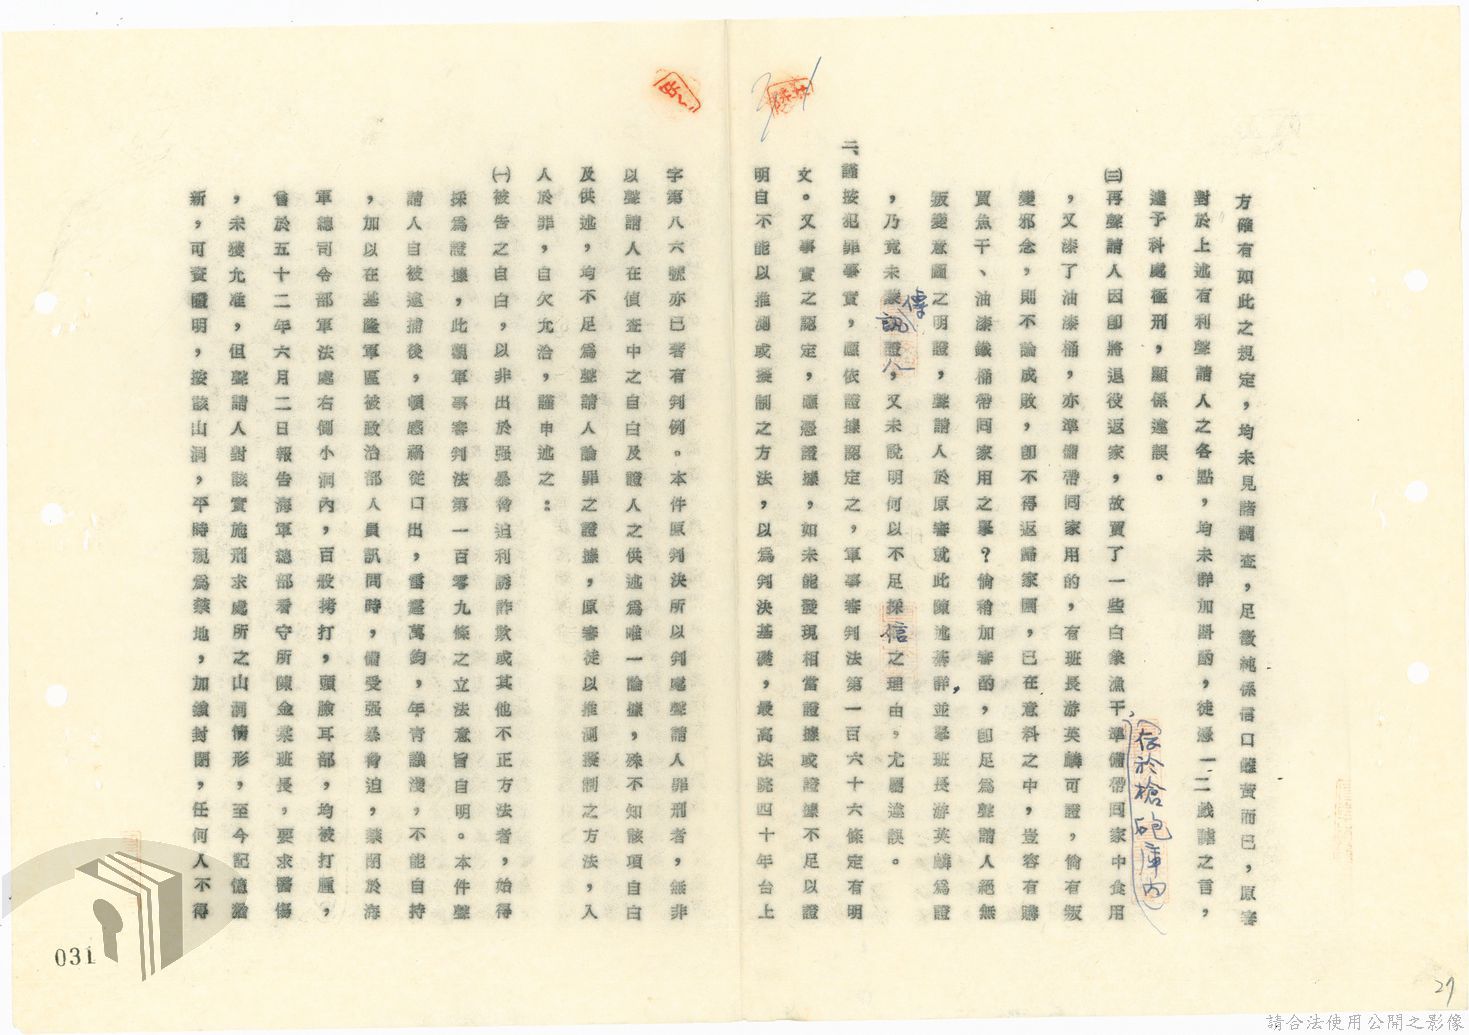 方確有如此之規定，均未見諸調查，足徵純係信口雌黃而已，原審
對於上述有利聲請人之各點，均未詳加斟酌，徒憑一二戲謔之言，
遽予科處極刑，顯係違誤。
㈢再聲請人因即將退役返家，故買了一些白象漁干準備帶回家中食用
存於槍砲庫內
，又漆了油漆桶，亦準備帶回家用的，有班長游英麟可證，倘有叛
變邪念，則不論成敗，即不得返歸家園，已在意料之中，豈容有購
買魚干、油漆鐵桶帶回家用之舉？倘稍加審酌，即足為聲請人絕無
叛變意圖之明證，聲請人於原審就此陳述綦詳，並舉班長游英麟為證
，乃竟未蒙傳訊證人，又未說明何以不足採信之理由，尤屬違誤。
二、謹按犯罪事實，應依證據認定之，軍事審判法第一百六十六條定有明
文。又事實之認定，應憑證據，如未能發現相當證據或證據不足以證
明自不能以推測或擬制之方法，以為判決基礎，最高法院四十年台上
字第八六號亦已著有判例。本件原判決所以判處聲請人罪刑者，無非
以聲請人在偵查中之自白及證人之供述為唯一論據，殊不知該項自白
及供述，均不足為聲請人論罪之證據，原審徒以推測擬制之方法，入
人於罪，自欠允洽，謹申述之：
㈠被告之自白，以非出於强暴脅迫利誘詐欺或其他不正方法者，始得
採為證據，此觀軍事審判法第一百零九條之立法意旨自明。本件聲
請人自被逮捕後，頓感禍從口出，雷霆萬鈞，年青識淺，不能自持
，加以在基隆軍區被政治部人員訊問時，備受强暴脅迫，禁閉於海
軍總司令部軍法處右側小洞內，百般拷打，頭臉耳部，均被打腫，
曾於五十二年六月二日報告海軍總部看守所陳金業班長，要求醫傷
，未獲允准，但聲請人對該實施刑求處所之山洞情形，至今記憶猶
新，可資證明，按該山洞，平時視為禁地，加鎖封閉，任何人不得
031
27
請合法使用公開之影像